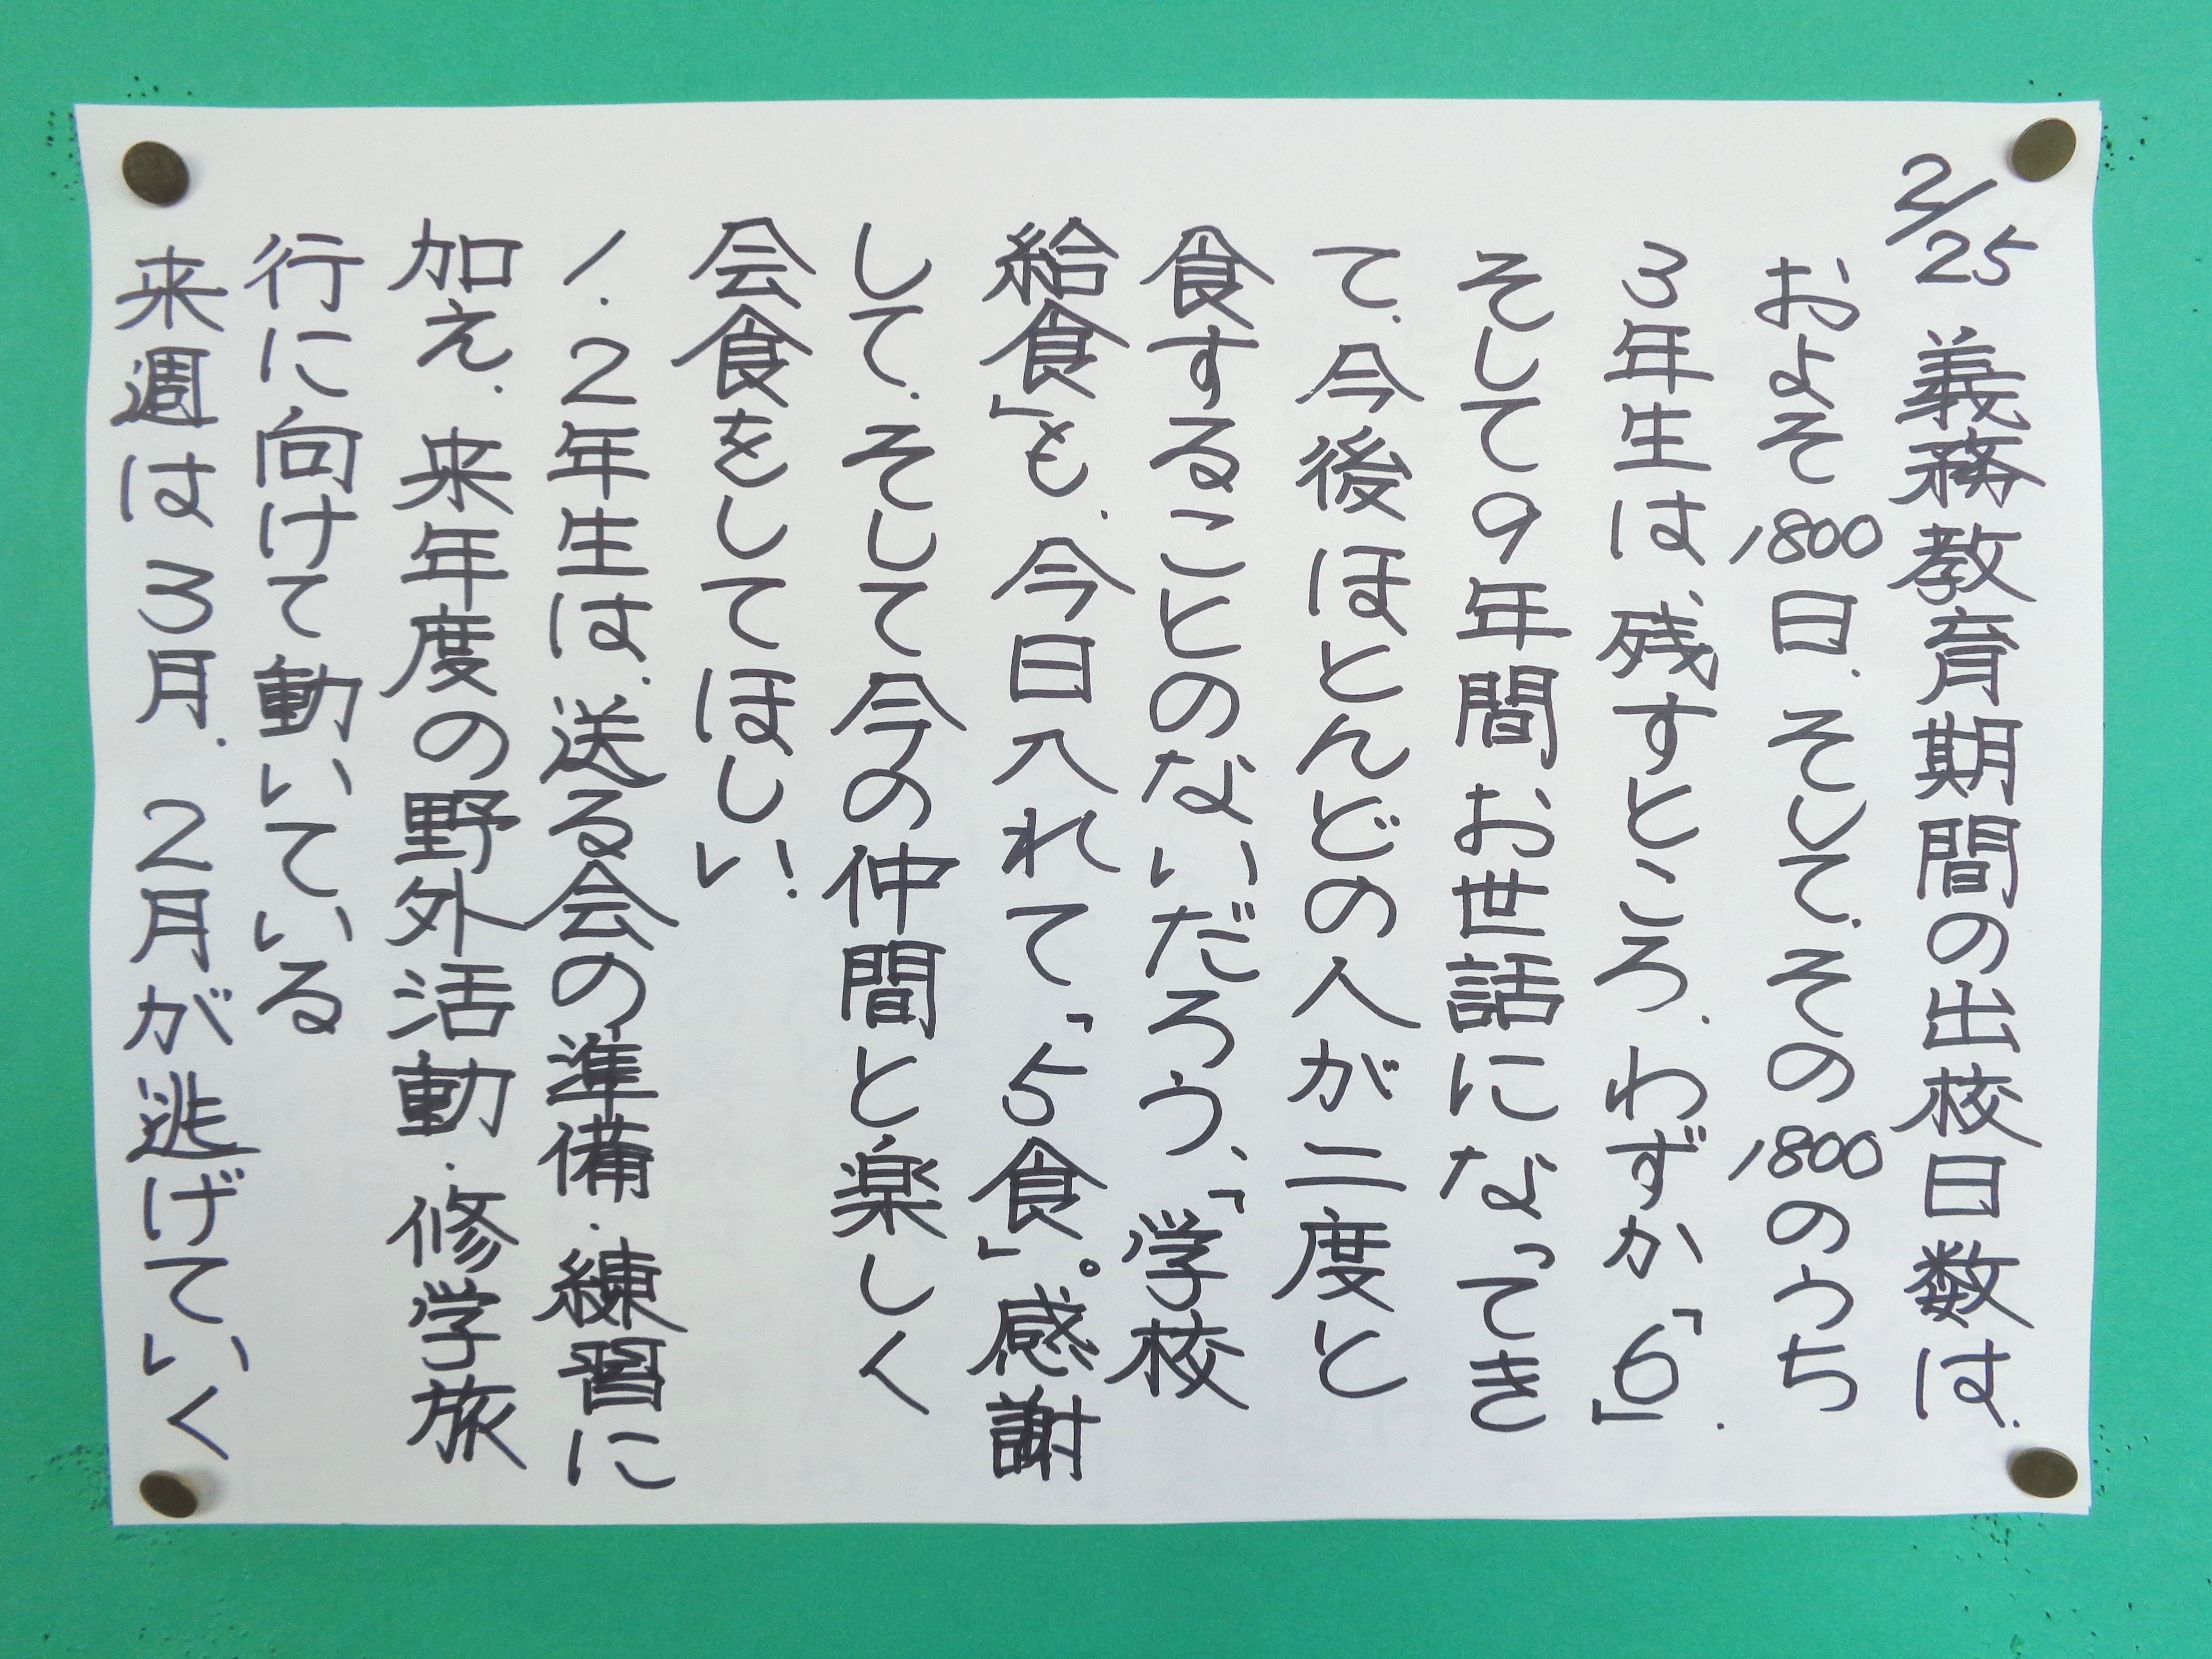 2/25 義務教育期間の出校日数は、
およそ1800日、そして、その1800のうち
3年生は、残すところ、わずか「6」、
そして9年間お世話になってき
て、今後ほとんどの人が二度と
食することのないだろう、「学校
給食」も、今日入れて、「5食」。感謝
して、そして今の仲間と楽しく
会食をしてほしい!
1、2年生は、送る会の準備・練習に
加え、来年度の野外活動・修学旅
行に向けて動いている
来週は3月、2月が逃げていく